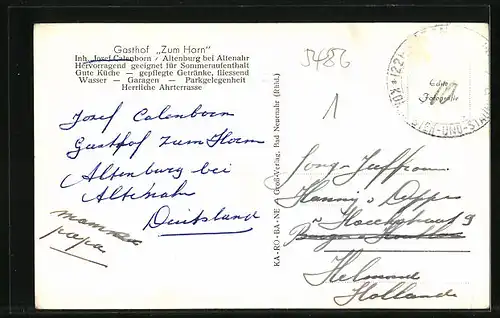 Gasthof „Zum Horn"
Inh. Josef Calenborn / Altenburg bei Altenahr
Hervorragend geeignet für Sommeraufenthalt
Gute Küche — gepflegte Getränke, fliessend
Wasser — Garagen — Parkgelegenheit
Herrliche Ahrterrasse
5486
1
Echte
Fotografie
Josef Calenborn
Gasthof zum Horn
Altenburg bei
Altenahr
Deutsland
mama
papa
KA-RO-BA-NE / Groß-Verlag, Bad Neuenahr (Rhld.)
Jong-Juffrouw
Hanny v
9
Helmond
Hollande